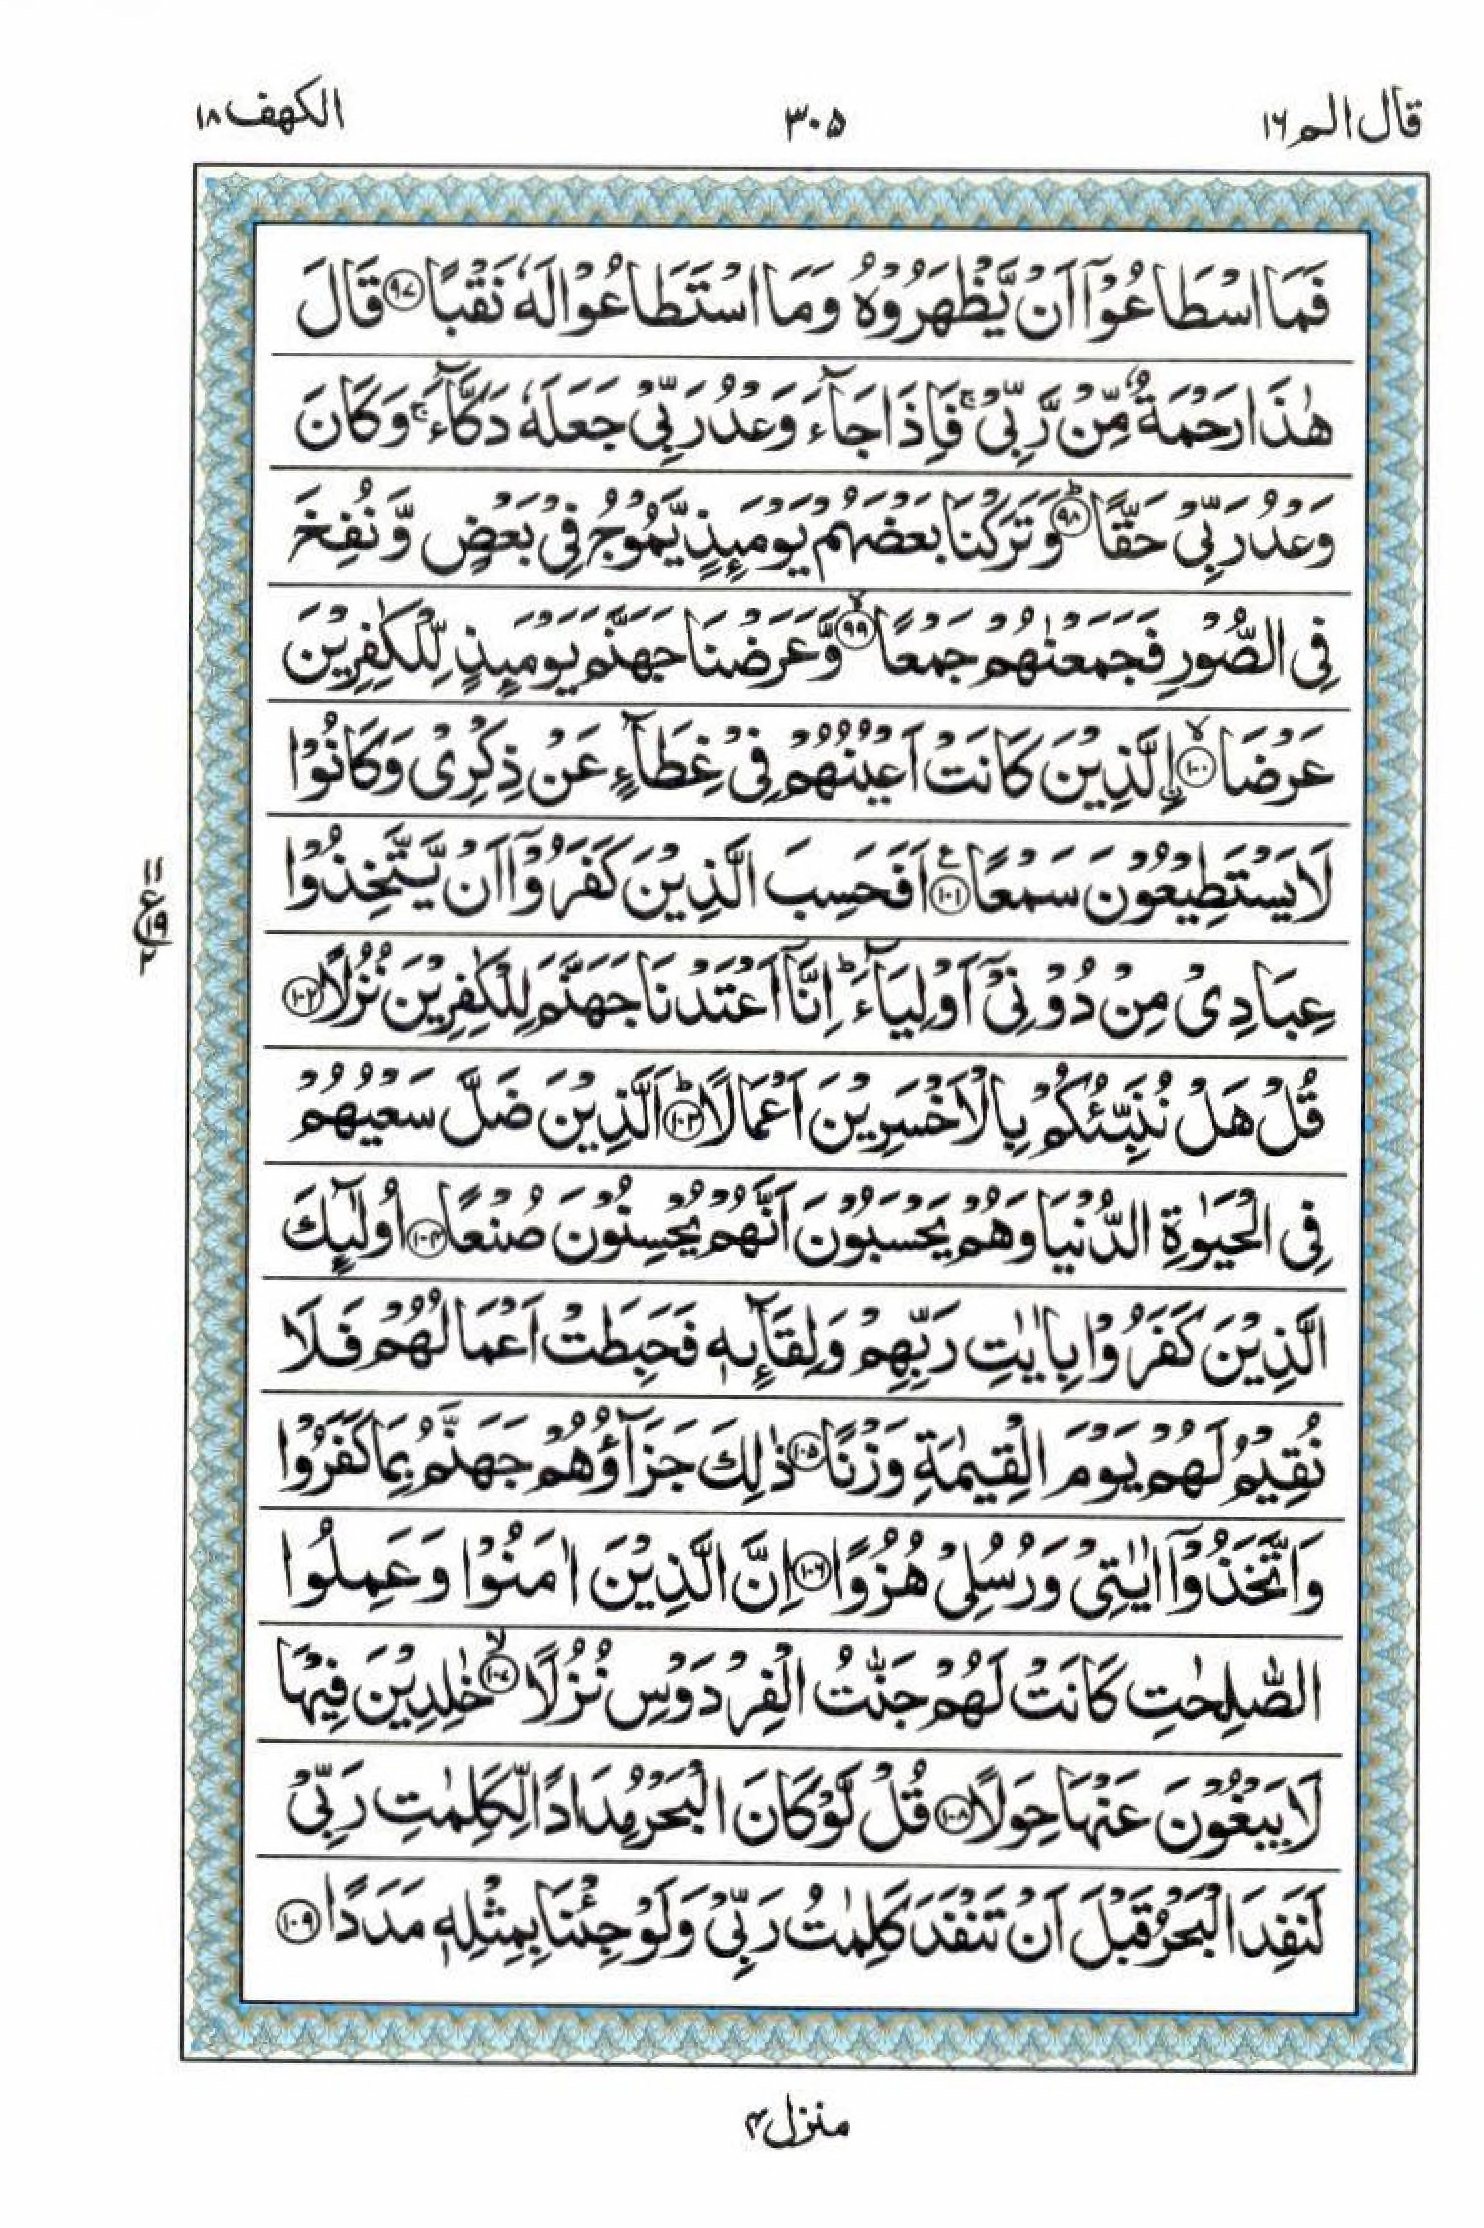 قال الم ١٦
٣٠٥
الكهف ١٨
فَمَا اسْطَاعُوْۤا اَنْ يَّظْهَرُوْهُ وَمَا اسْتَطَاعُوْا لَهٗ نَقْبًا ﴿٩٧﴾ قَالَ
هٰذَا رَحْمَةٌ مِّنْ رَّبِّيْ ۚ فَاِذَا جَآءَ وَعْدُ رَبِّيْ جَعَلَهٗ دَكَّآءَ ۚ وَكَانَ
وَعْدُ رَبِّيْ حَقًّا ﴿٩٨﴾ؕ وَتَرَكْنَا بَعْضَهُمْ يَوْمَىِٕذٍ يَّمُوْجُ فِيْ بَعْضٍ وَّنُفِخَ
فِي الصُّوْرِ فَجَمَعْنٰهُمْ جَمْعًا ﴿٩٩﴾ۙ وَّعَرَضْنَا جَهَنَّمَ يَوْمَىِٕذٍ لِّلْكٰفِرِيْنَ
عَرْضَا ﴿١٠٠﴾ۙ ِۨالَّذِيْنَ كَانَتْ اَعْيُنُهُمْ فِيْ غِطَآءٍ عَنْ ذِكْرِيْ وَكَانُوْا
لَا يَسْتَطِيْعُوْنَ سَمْعًا ﴿١٠١﴾ع اَفَحَسِبَ الَّذِيْنَ كَفَرُوْۤا اَنْ يَّتَّخِذُوْا
١١
ع
١٩
٢
عِبَادِيْ مِنْ دُوْنِيْۤ اَوْلِيَآءَ ؕ اِنَّاۤ اَعْتَدْنَا جَهَنَّمَ لِلْكٰفِرِيْنَ نُزُلًا ﴿١٠٢﴾
قُلْ هَلْ نُنَبِّئُكُمْ بِالْاَخْسَرِيْنَ اَعْمَالًا ﴿١٠٣﴾ؕ اَلَّذِيْنَ ضَلَّ سَعْيُهُمْ
فِي الْحَيٰوةِ الدُّنْيَا وَهُمْ يَحْسَبُوْنَ اَنَّهُمْ يُحْسِنُوْنَ صُنْعًا ﴿١٠٤﴾ اُولٰٓىِٕكَ
الَّذِيْنَ كَفَرُوْا بِاٰيٰتِ رَبِّهِمْ وَلِقَآىِٕهٖ فَحَبِطَتْ اَعْمَالُهُمْ فَلَا
نُقِيْمُ لَهُمْ يَوْمَ الْقِيٰمَةِ وَزْنًا ﴿١٠٥﴾ ذٰلِكَ جَزَآؤُهُمْ جَهَنَّمُ بِمَا كَفَرُوْا
وَاتَّخَذُوْۤا اٰيٰتِيْ وَرُسُلِيْ هُزُوًا ﴿١٠٦﴾ اِنَّ الَّذِيْنَ اٰمَنُوْا وَعَمِلُوا
الصّٰلِحٰتِ كَانَتْ لَهُمْ جَنّٰتُ الْفِرْدَوْسِ نُزُلًا ﴿١٠٧﴾ۙ خٰلِدِيْنَ فِيْهَا
لَا يَبْغُوْنَ عَنْهَا حِوَلًا ﴿١٠٨﴾ قُلْ لَّوْ كَانَ الْبَحْرُ مِدَادًا لِّكَلِمٰتِ رَبِّيْ
لَنَفِدَ الْبَحْرُ قَبْلَ اَنْ تَنْفَدَ كَلِمٰتُ رَبِّيْ وَلَوْ جِئْنَا بِمِثْلِهٖ مَدَدًا ﴿١٠٩﴾
منزل ٤